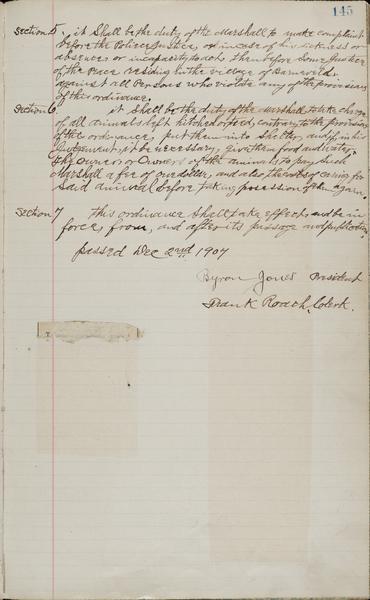 145
Section 5. it Shall be the duty of the Marshall to make complaint
before the Police Justice, or in case of his sickness or
absence or incapacity to act, then before Some Justice
of the Peace residing in the village of Barneveld
against all Persons who violate any of the provisions
of this ordinance.
Section 6. it Shall be the duty of the Marshall to take charge
of all animals left hitched or tied, contrary to the provisions
of the ordinance, put them into Shelter, and if in his
Judgement, it be necessary, give them food and water,
the owner or owners of the animals to pay such
Marshall a fee of one dollar, and also the costs of caring for
Said animal before taking possession of them again.
Section 7 this ordinance Shall take effect, and be in
force, from, and after its passage and publication.
passed Dec 2nd 1907
Byron Jones President
Frank Roach, Clerk.